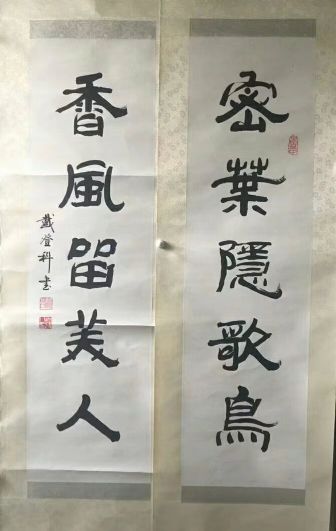 密葉隱歌鳥
香風留美人
戴登科书